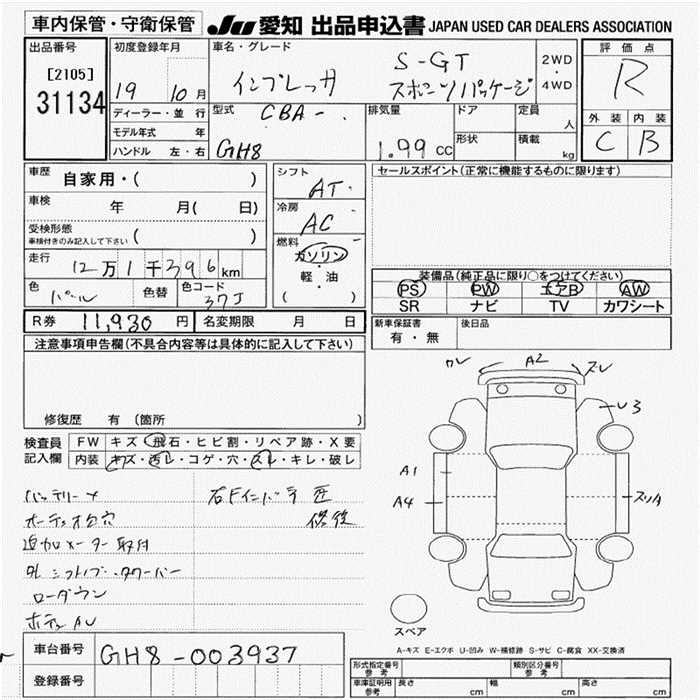 車内保管・守衛保管
JU 愛知 出品申込書 JAPAN USED CAR DEALERS ASSOCIATION
出品番号
[2105]
31134
初度登録年月
19 10月
ディーラー・並行
モデル年式 年
ハンドル 左・右
車名・グレード
インプレッサ
S-GT
スポーツパッケージ
2WD
・
4WD
型式
CBA-
GH8
排気量
1.99 cc
ドア
定員
人
形状
積載
kg
評価点
R
外装 内装
C B
車歴
自家用・( )
車検
年 月( 日)
受検形態
車検付きのみ記入して下さい ( )
走行
12万1千396km
色
パール
色替
色コード
37J
シフト
AT
冷房
AC
燃料
ガソリン
・
軽・油
( )
セールスポイント(正常に機能するものに限ります)
装備品(純正品に限り○をつけてください)
PS PW エアB AW
SR ナビ TV カワシート
R券 11,930 円 名変期限 月 日
新車保証書
有・無
後日品
注意事項申告欄(不具合内容等は具体的に記入して下さい)
修復歴 有 (箇所 )
検査員
記入欄
FW キズ・飛石・ヒビ割・リペア跡・X要
内装 キズ・汚レ・コゲ・穴・スレ・キレ・破レ
バッテリーナ
オーディオ台穴
追加メーター取付
社外シフトノブ・タワーバー
ローダウン
ボディAU
右Fインパネ
修復
A2
スレ
U3
A1
A4
スリA
スペア
A-キズ E-エクボ U-凹み W-補修跡 S-サビ C-腐食 XX-交換済
車台番号 GH8-003937
登録番号
形式指定番号
参考
類別区分番号
車庫証明用
参考
長さ cm 幅 cm 高さ cm